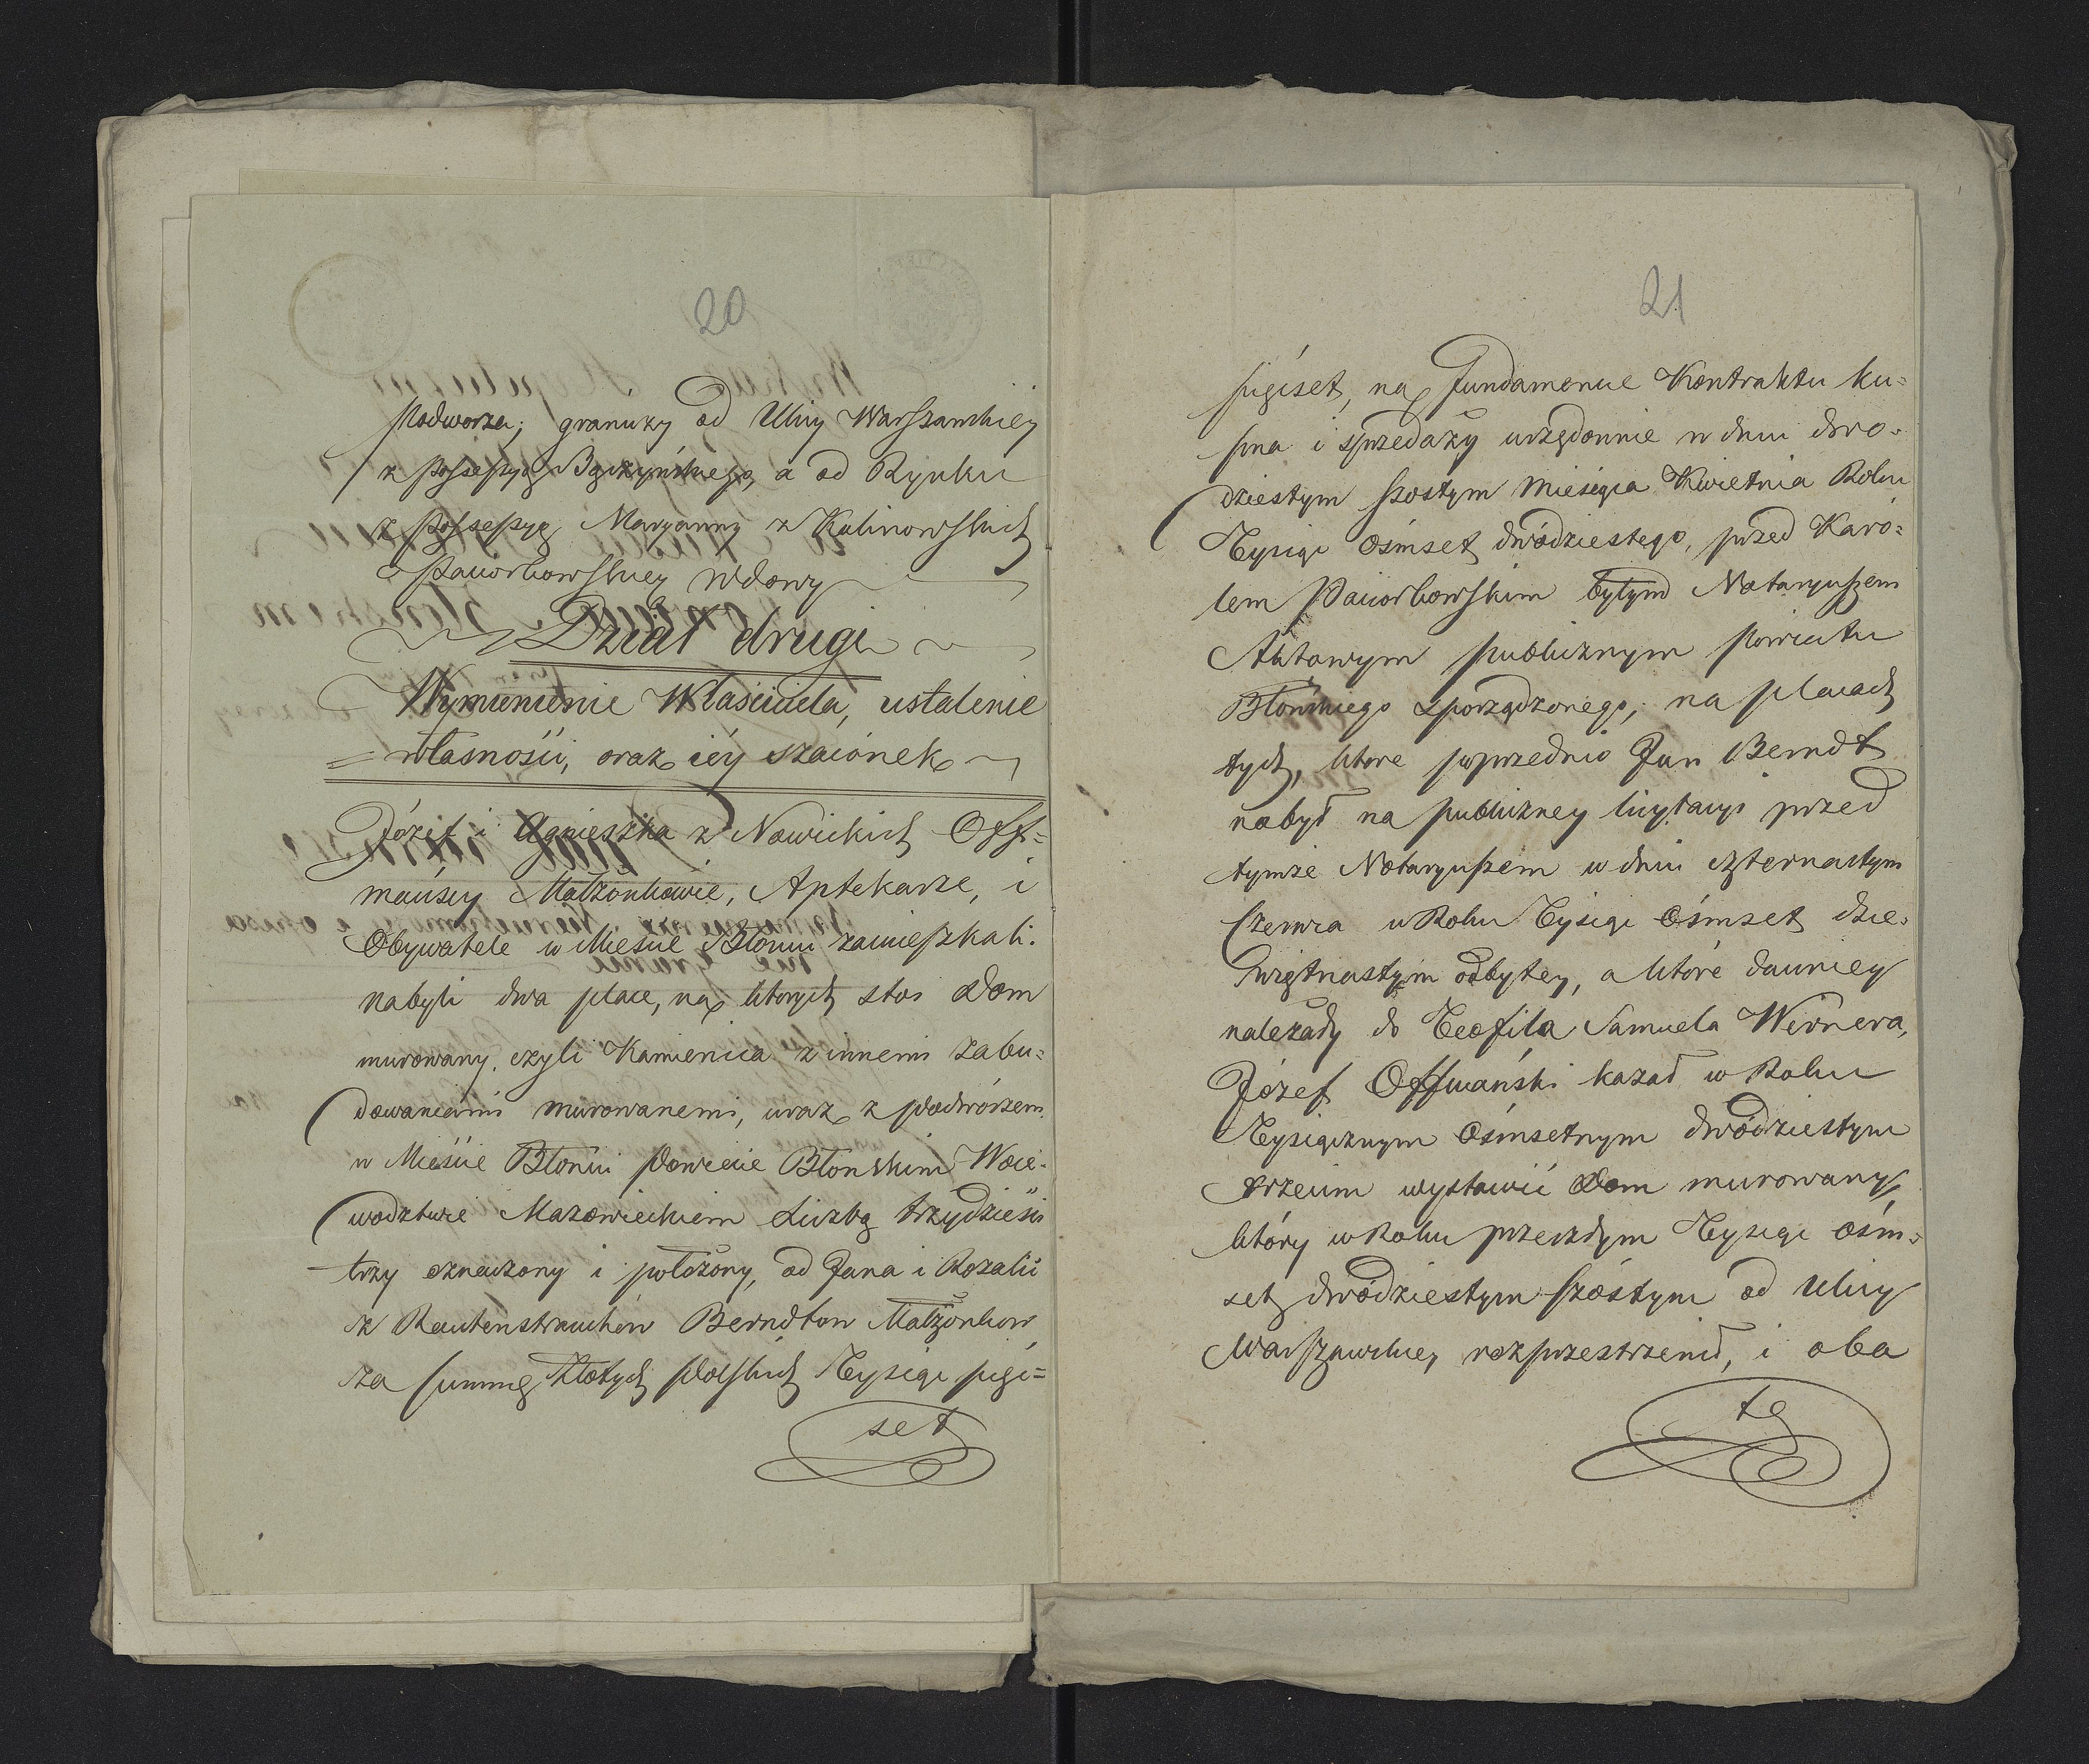 20
Podworza; graniczy od Ulicy Warszawskiey
z possessyą Bączyńskiego, a od Rynku
z possessyą Maryanny z Kalinowskich
Paciorkowskiey wdowy
Dział drugi
Wymienienie Właściciela, ustalenie
własności, oraz iéy szacónek
Józef i Agnieszka z Nowickich Off=
mańscy Małżonkowie, Aptekarze, i
Obywatele w Mieście Błoniu zamieszkali.
nabyli dwa place, na których stoi Dom
murowany, czyli Kamienica z innemi zabu=
dowaniami murowanemi, wraz z podwórzem
w Mieście Błoniu Powiecie Błonskim Woie-
wodztwie Mazowieckiem Liczbą trzydzieści
trzy oznaczony i położony, od Jana i Rozalii
z Rautenstrauchów Berndtow Małżonkow
za summę Złotych Polskich Tysiąc pięć=
set
21
pięćset, na fundamencie Kontraktu ku=
pna i sprzedaży urzędownie w dniu dwo=
dziestym szostym Miesiąca Kwietnia Roku
Tysiąc Ośmset dwódziestego, przed Karo=
lem Paciorkowskim byłym Notaryuszem
Aktowym publicznym Powiatu
Błońskiego sporządzonego, na placach
tych, które poprzednio Jan Berndt
nabył na publiczney licytacyi przed
tymże Notaryuszem w dniu czternastym
Czerwca w Roku Tysiąc Ośmset dzie=
więtnastym odbytey, a które dawniey
należały do Teofila Samuela Wernera,
Józef Offmański kazał w Roku
Tysiącznym Ośmsetnym dwódziestym
trzecim wystawić Dom murowany,
który w Roku przeszłym Tysiąc ośm=
set dwódziestym szóstym od Ulicy
Warszawskiey rozprzestrzenił, i oba
te